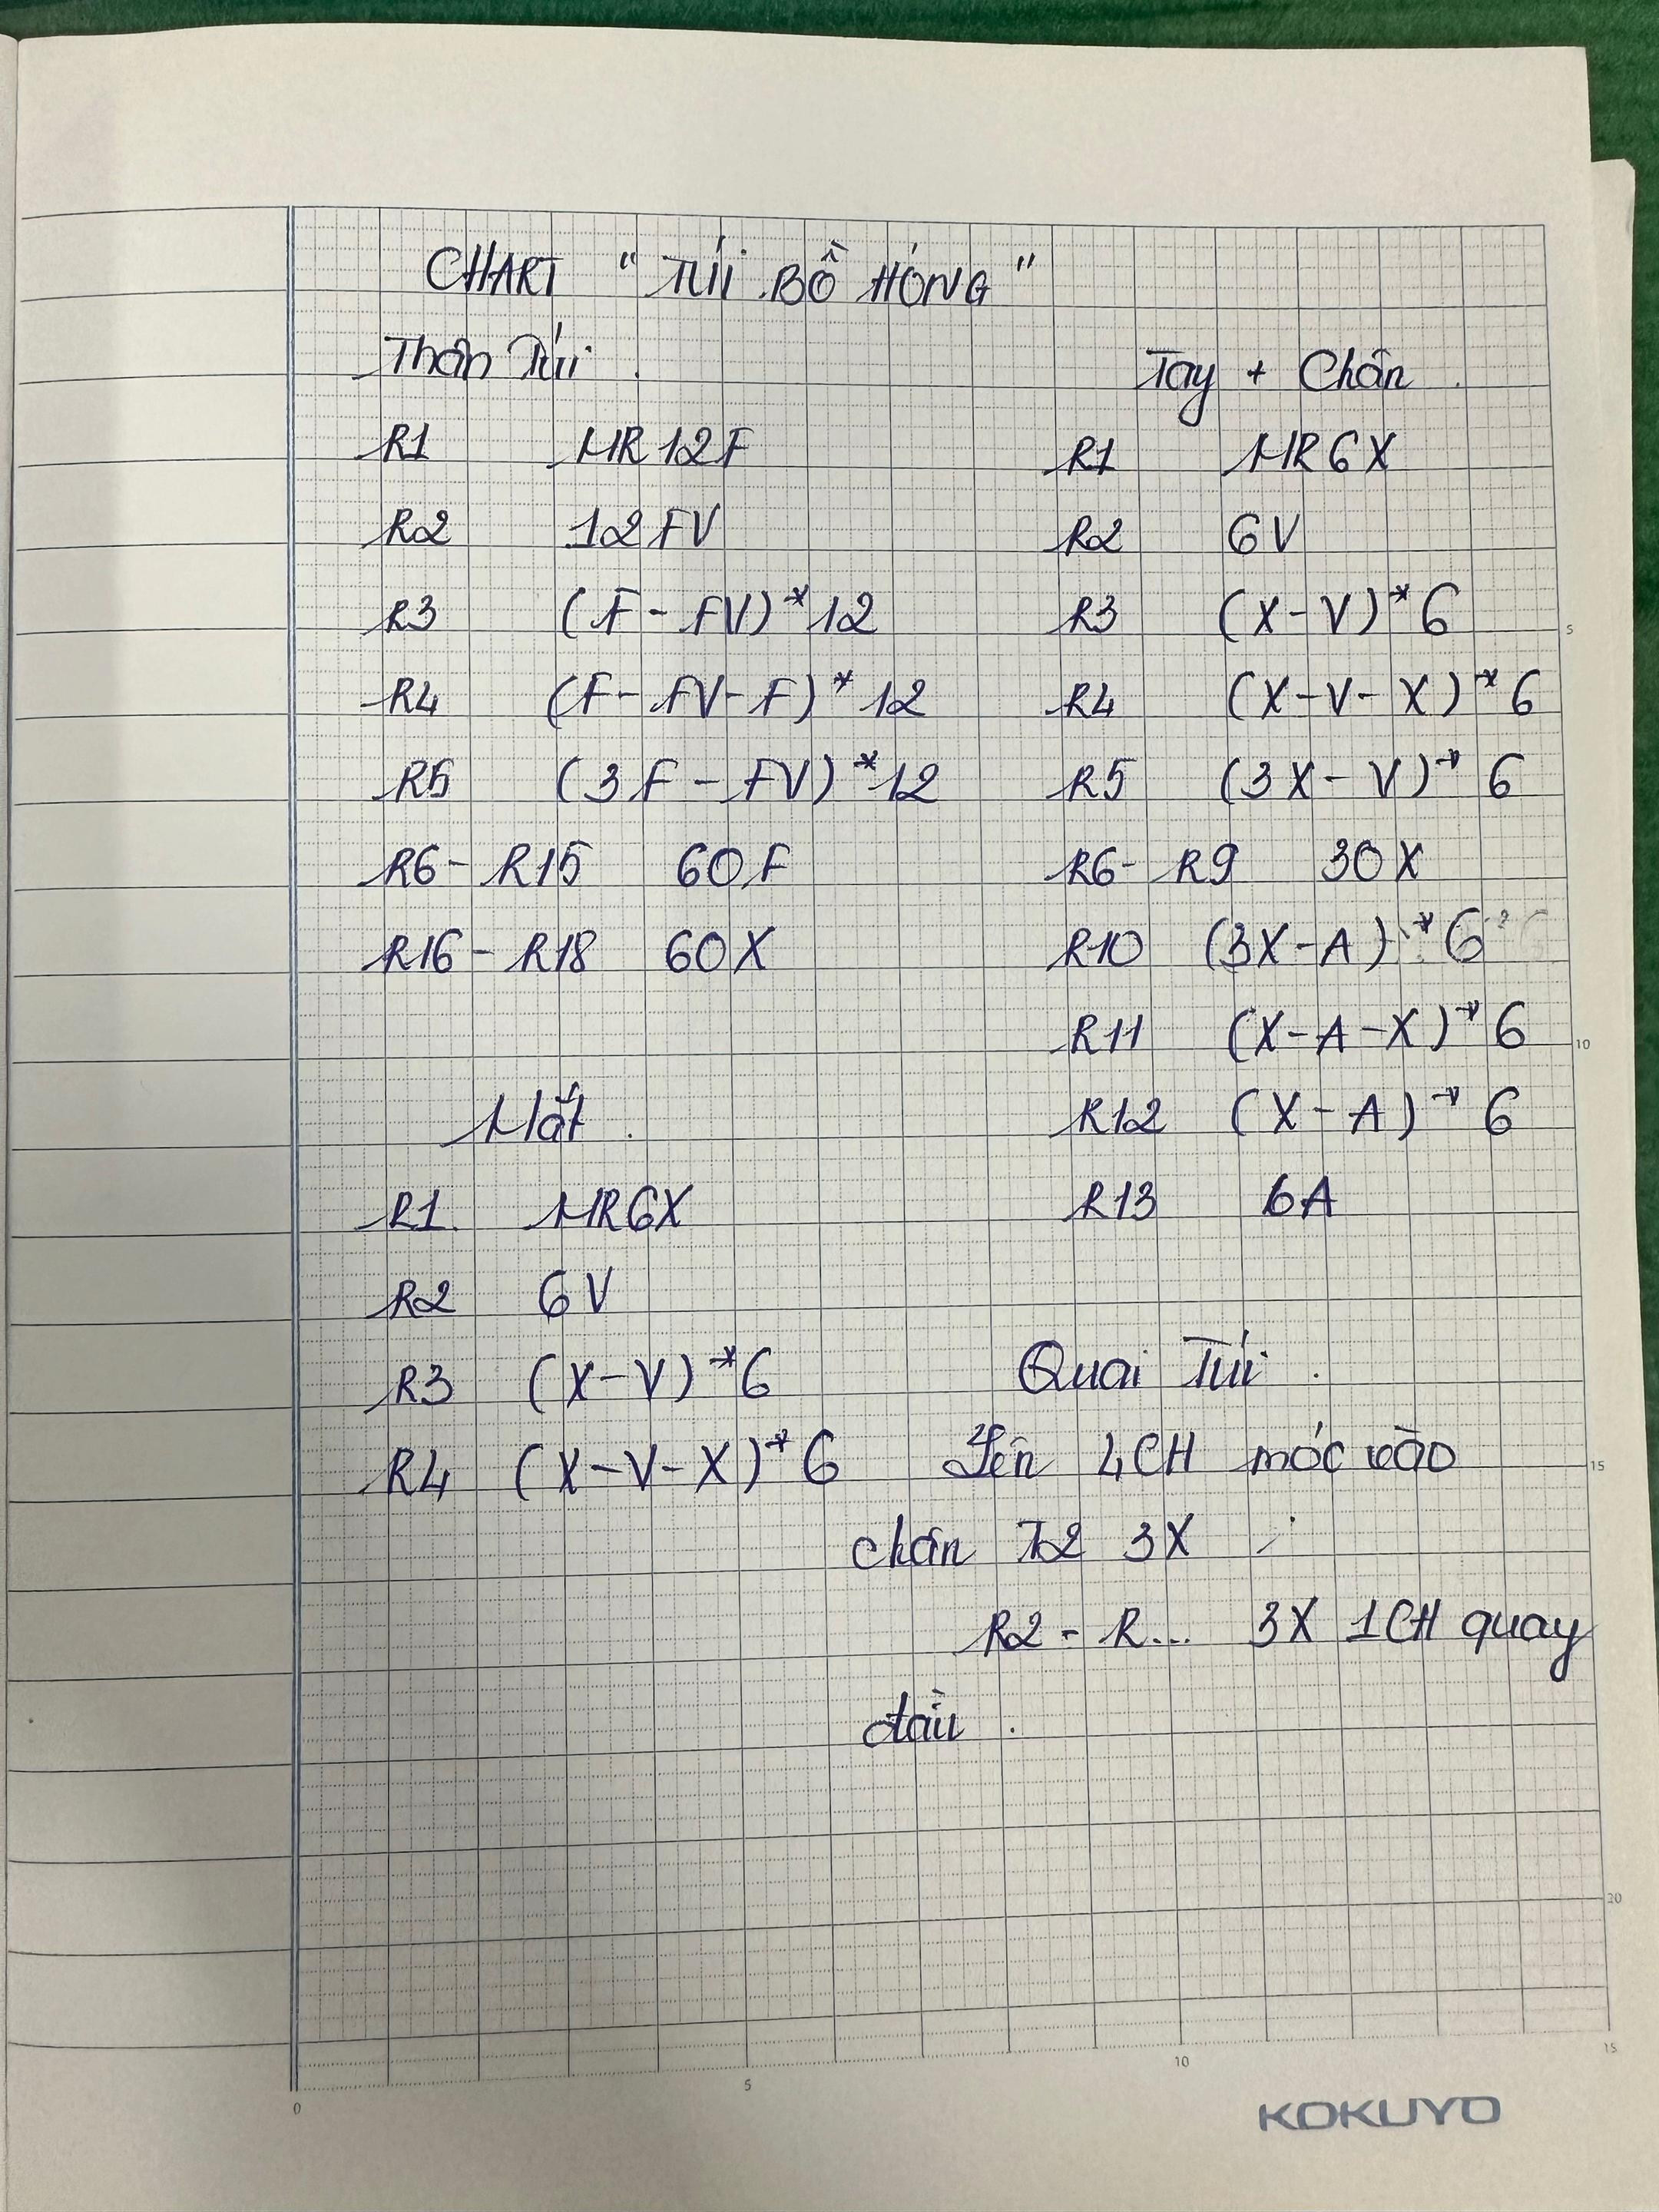 CHART " TÚI BỒ HÓNG "
Thân Túi .
R1 MR 12F
R2 12 FV
R3 (F - FV) * 12
R4 (F - FV - F) * 12
R5 (3F - FV) * 12
R6 - R15 60F
R16 - R18 60X
Mắt .
R1 MR6X
R2 6V
R3 (X - V) * 6
R4 (X - V - X) * 6
Tay + Chân .
R1 MR6X
R2 6V
R3 (X - V) * 6
R4 (X - V - X) * 6
R5 (3X - V) * 6
R6 - R9 30X
R10 (3X - A) * 6
R11 (X - A - X) * 6
R12 (X - A) * 6
R13 6A
Quai Túi .
Lên 4CH móc vào
chân T2 3X
R2 - R... 3X 1CH quay
đầu .
5
10
15
20
0
5
10
15
KOKUYO